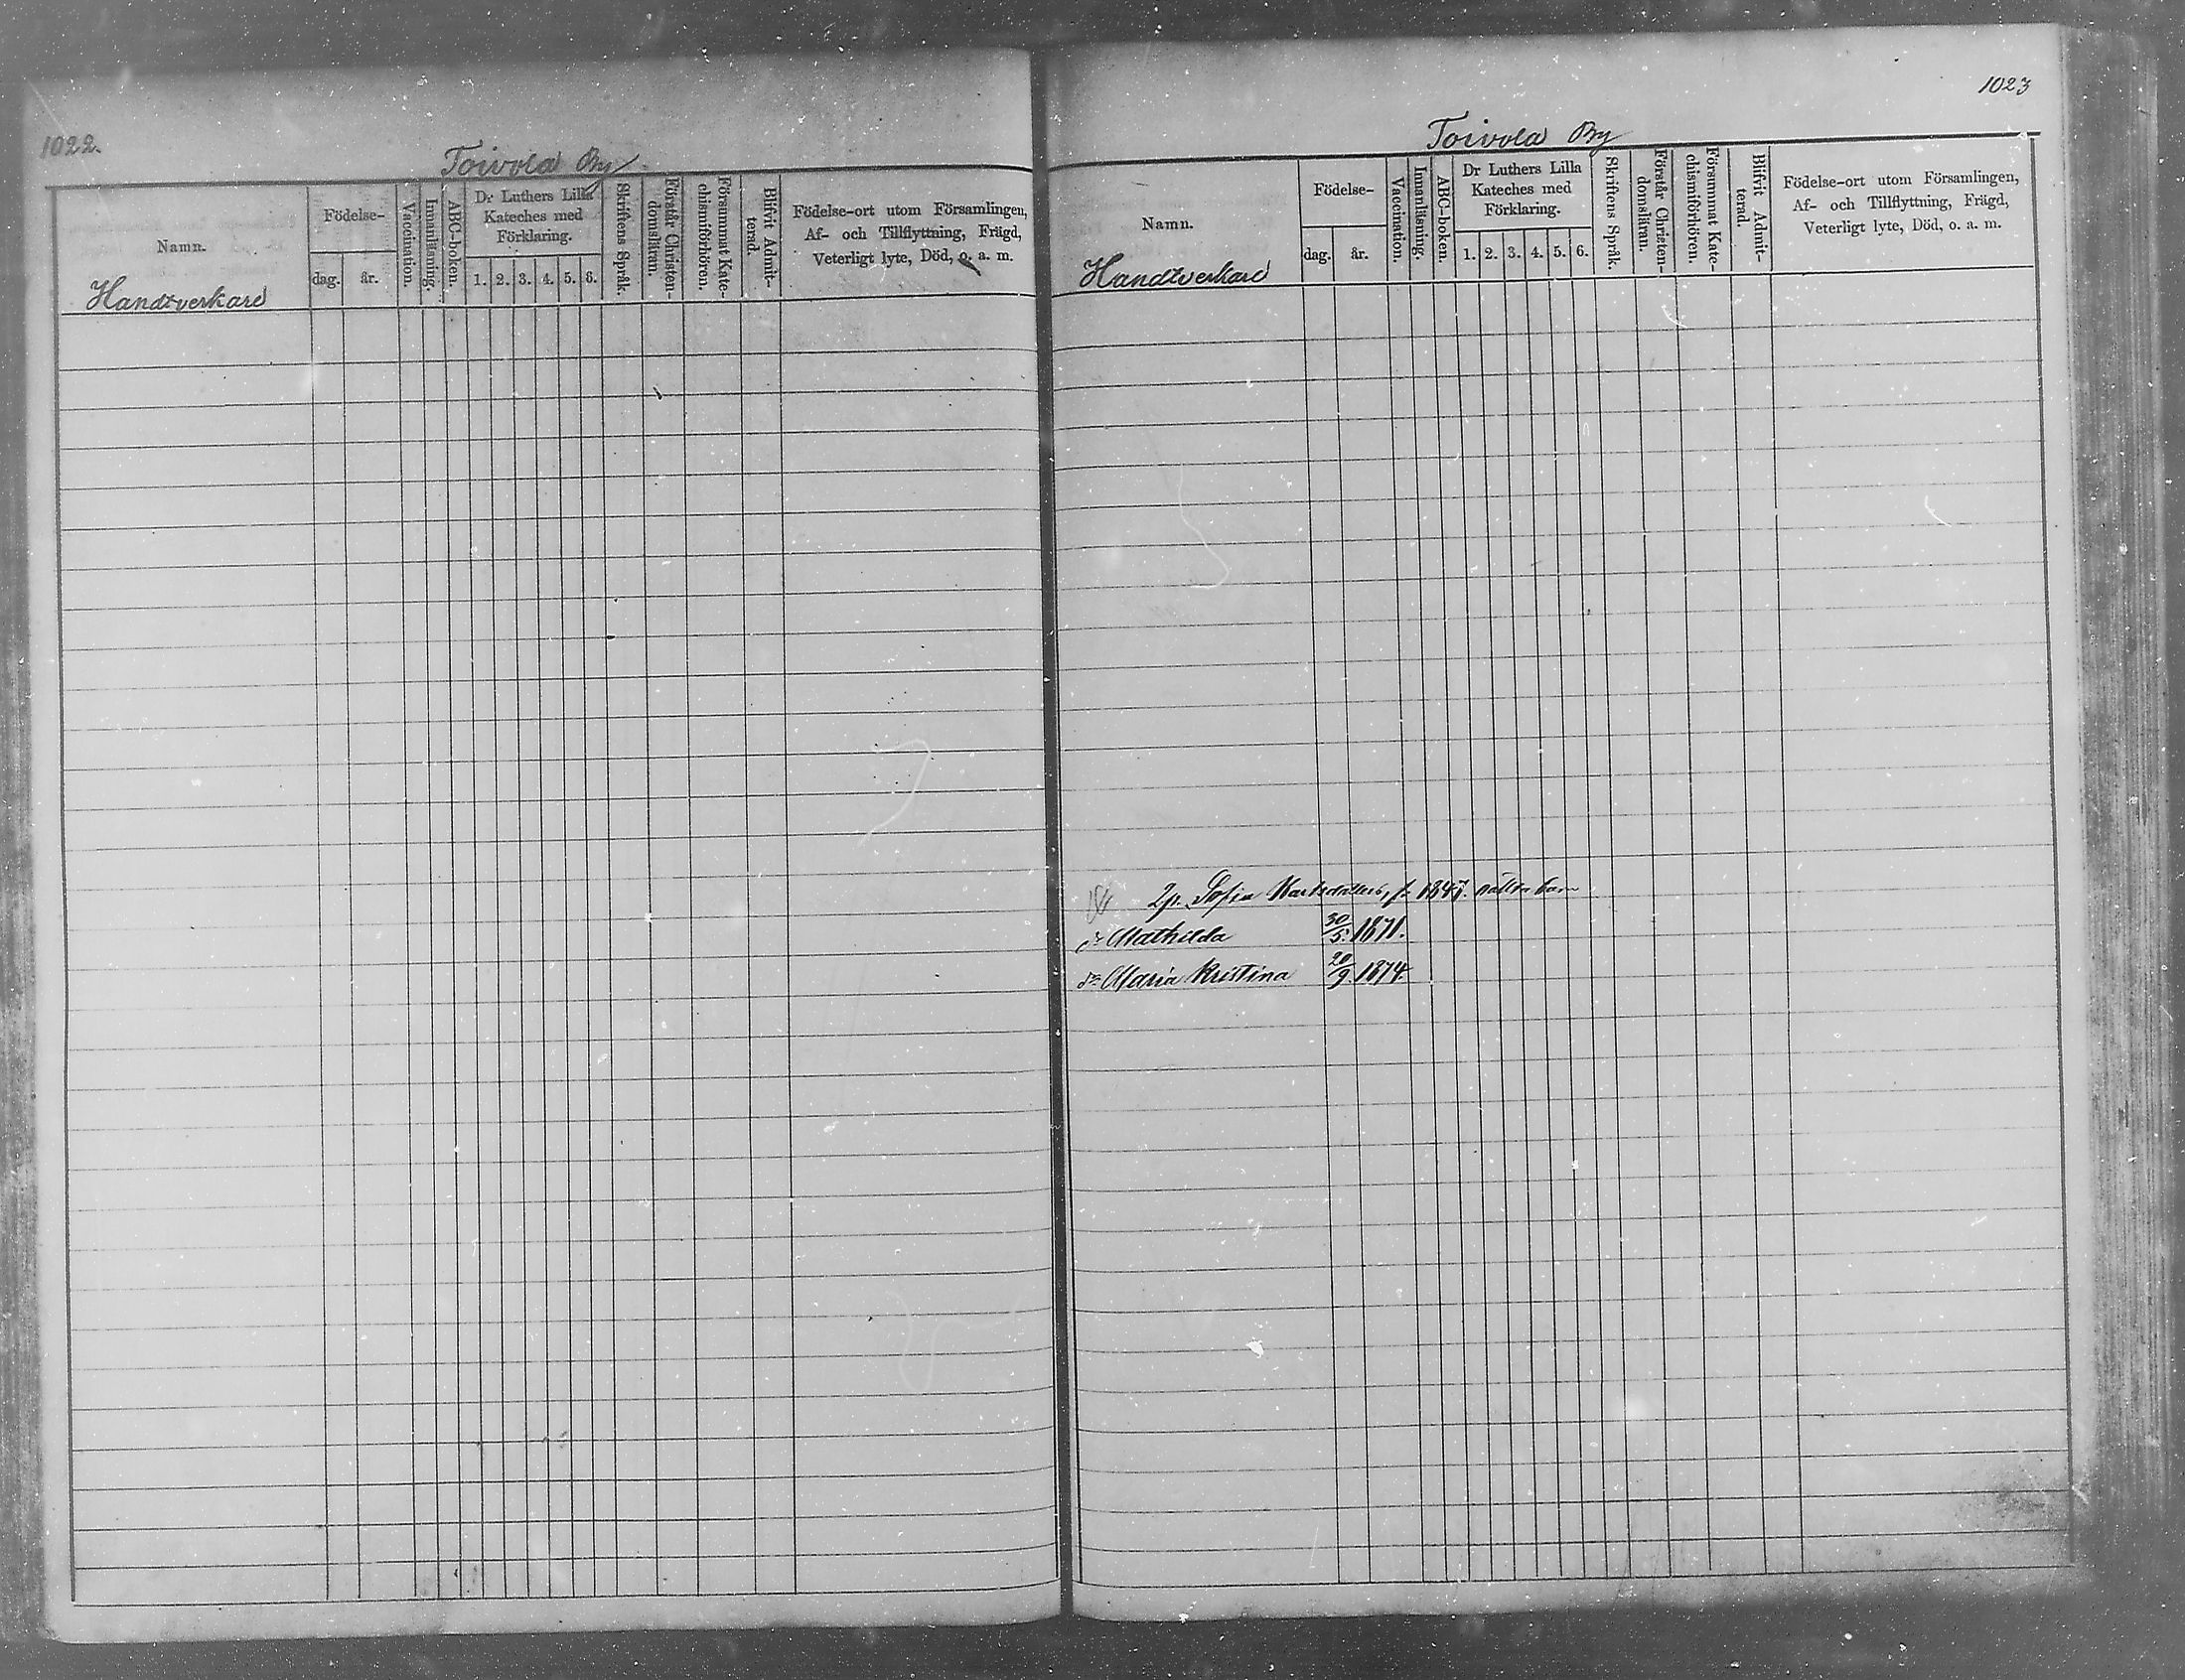 1022.
Toivola By
Namn.
Födelse-
dag.
år.
Vaccination.
Innanläsning.
ABC-boken.
Dr Luthers Lilla
Kateches med
Förklaring.
1. 2. 3. 4. 5. 6.
Skriftens Språk.
Förstår Christen-
domsläran.
Försummat Kate-
chismiförhören.
Blifvit Admit-
terad.
Födelse-ort utom Församlingen,
Af- och Tillflyttning, Frägd,
Veterligt lyte, Död, o. a. m.
Handtverkare
1023
Toivola By
Namn.
Födelse-
dag.
år.
Vaccination.
Innanläsning.
ABC-boken.
Dr Luthers Lilla
Kateches med
Förklaring.
1. 2. 3. 4. 5. 6.
Skriftens Språk.
Förstår Christen-
domsläran.
Försummat Kate-
chismiförhören.
Blifvit Admit-
terad.
Födelse-ort utom Församlingen,
Af- och Tillflyttning, Frägd,
Veterligt lyte, Död, o. a. m.
Handtverkare
Sofia Karlsdotters, f. 1847. oäkta barn
Mathilda 30/5. 1871.
Maria Kristina 20/9. 1874.